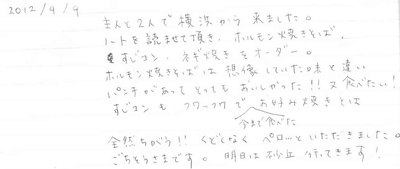 2012/9/9
主人と2人で横浜から来ました。
ノートを読ませて頂き、ホルモン焼きそば、
すじコン、ネギ焼きをオーダー。
ホルモン焼きそばは想像していた味と違い
パンチがあってとってもおいしかった!!又食べたい!
すじコンもフワーフワでお好み焼きとは
今まで食べた
全然ちがう!!くどくなくペロッといただきました。
ごちそうさまです。明日は砂丘行ってきます!